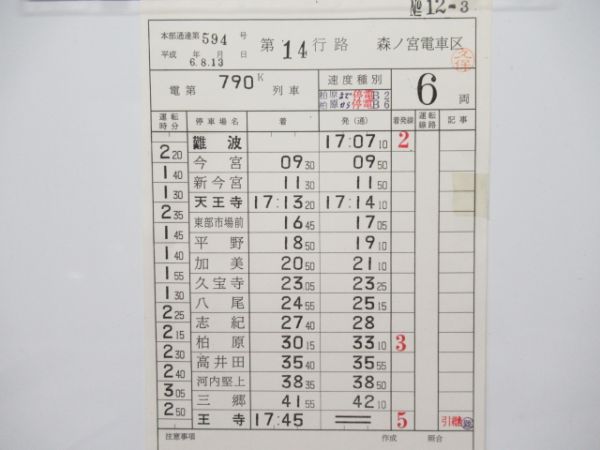 №12-3
本部通達第 594 号
平成 年 月 日
6.8.13
第 14 行路 森ノ宮電車区
電第 790K 列車 速度種別 6 両
柏原まで停電B2
柏原から停電B6
運転時分 停車場名 着 発(通) 着発線 運転線路 記事
難波 17:07 10 2
2 20
今宮 09 30 09 50
1 40
新今宮 11 30 11 50
1 30
天王寺 17:13 20 17:14 10
2 35
東部市場前 16 45 17 05
1 45
平野 18 50 19 10
1 40
加美 20 50 21 10
1 55
久宝寺 23 05 23 25
1 30
八尾 24 55 25 15
2 25
志紀 27 40 28
2 15
柏原 30 15 33 10 3
2 30
高井田 35 40 35 55
2 40
河内堅上 38 35 38 50
3 05
三郷 41 55 42 10
2 50
王寺 17:45 5 引継
注意事項 作成 照合